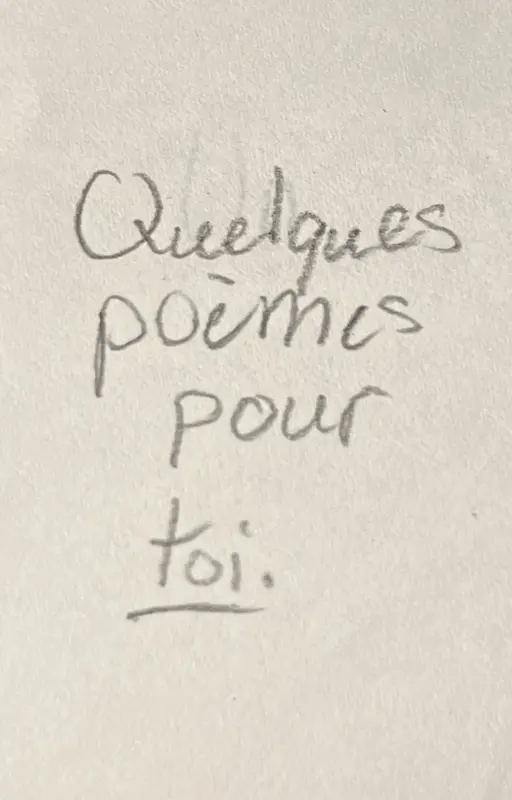 Quelques
poèmes
pour
toi.